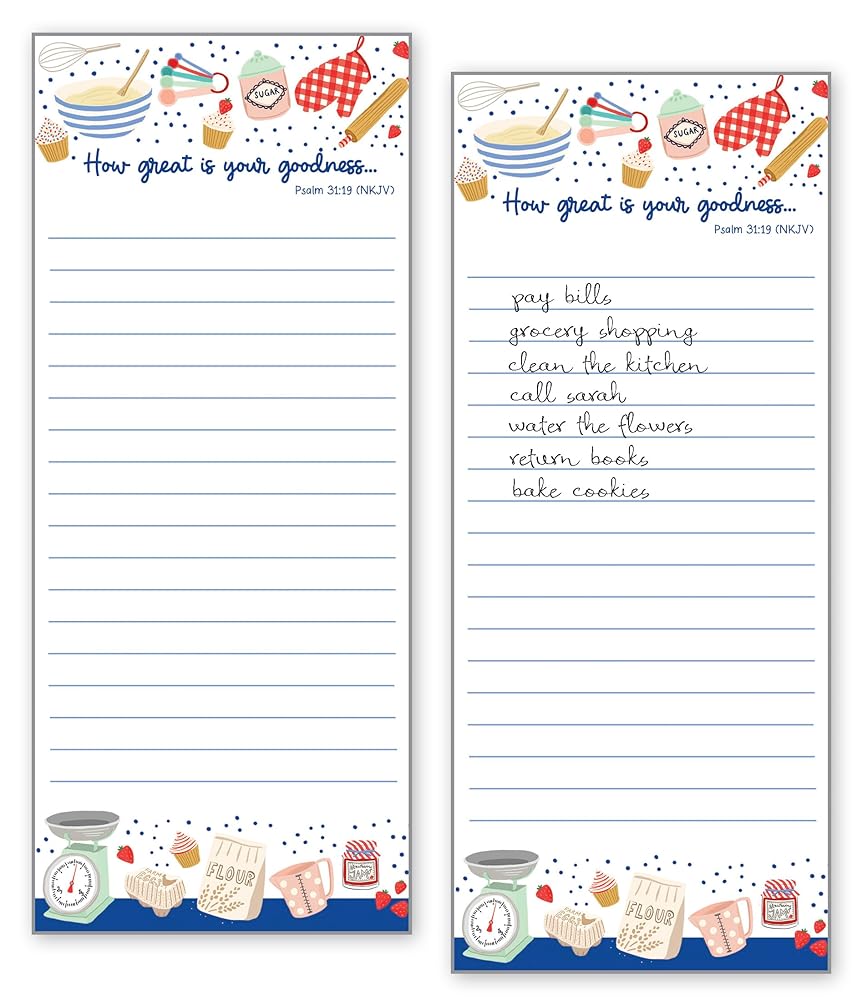 SUGAR
How great is your goodness...
Psalm 31:19 (NKJV)
FARM
EGGS
FLOUR
Strawberry
JAM
SUGAR
How great is your goodness...
Psalm 31:19 (NKJV)
pay bills
grocery shopping
clean the kitchen
call sarah
water the flowers
return books
bake cookies
FARM
EGGS
FLOUR
Strawberry
JAM